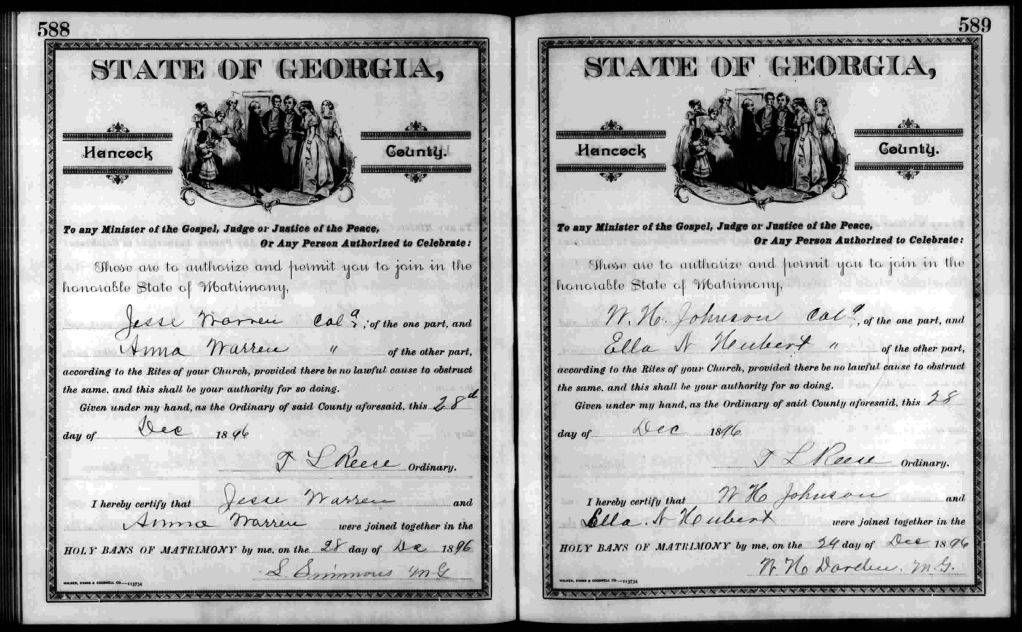 588
STATE OF GEORGIA,
Hancock County.
To any Minister of the Gospel, Judge or Justice of the Peace,
Or Any Person Authorized to Celebrate:
These are to authorize and permit you to join in the
honorable State of Matrimony,
Jesse Warren Cold, of the one part, and
Anna Warren " of the other part,
according to the Rites of your Church, provided there be no lawful cause to obstruct
the same, and this shall be your authority for so doing.
Given under my hand, as the Ordinary of said County aforesaid, this 28d
day of Dec 1896
T L Reese Ordinary.
I hereby certify that Jesse Warren and
Anna Warren were joined together in the
HOLY BANS OF MATRIMONY by me, on the 28 day of Dec 1896
S. Simmons M G
WALKER, EVANS & COGSWELL CO.—113734
589
STATE OF GEORGIA,
Hancock County.
To any Minister of the Gospel, Judge or Justice of the Peace,
Or Any Person Authorized to Celebrate:
These are to authorize and permit you to join in the
honorable State of Matrimony,
W. H. Johnson Cold, of the one part, and
Ella N Hubert " of the other part,
according to the Rites of your Church, provided there be no lawful cause to obstruct
the same, and this shall be your authority for so doing.
Given under my hand, as the Ordinary of said County aforesaid, this 28
day of Dec 1896
T L Reese Ordinary.
I hereby certify that W H Johnson and
Ella N Hubert were joined together in the
HOLY BANS OF MATRIMONY by me, on the 29 day of Dec 1896
W H Darden. M. G.
WALKER, EVANS & COGSWELL CO.—113734